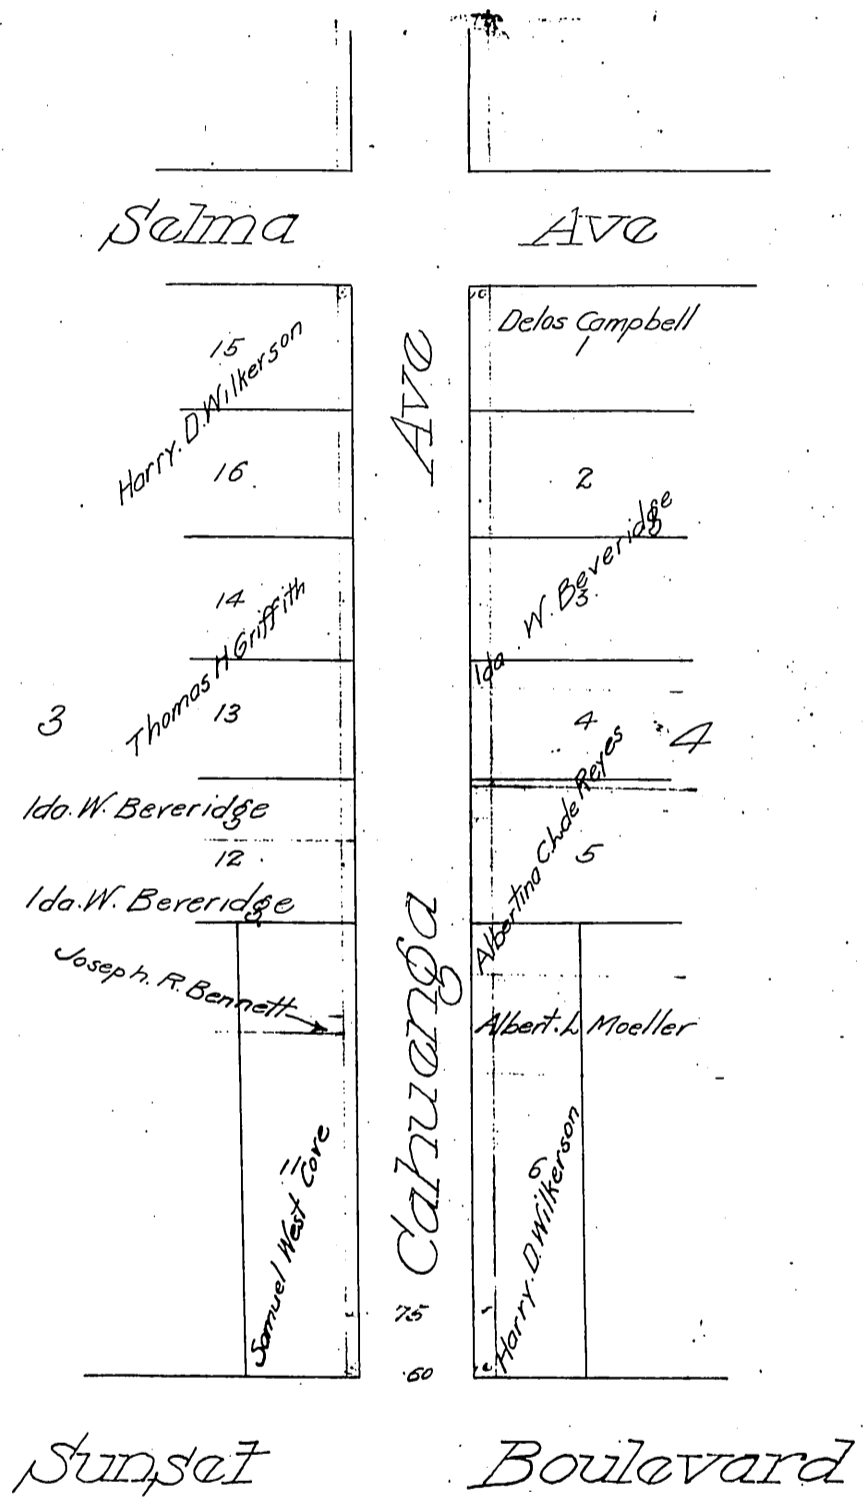 Selma Ave
15
Harry. D. Wilkerson
16
14
Thomas H Griffith
13
3
Ida. W. Beveridge
12
Ida. W. Beveridge
Joseph. R. Bennett
11
Samuel West Core
Cahuenga Ave
75
60
Delos Campbell
1
2
Ida. W. Beveridge
3
4
4
Albertina C. L. de Reyes
5
Albert. L Moeller
6
Harry. D. Wilkerson
Sunset Boulevard